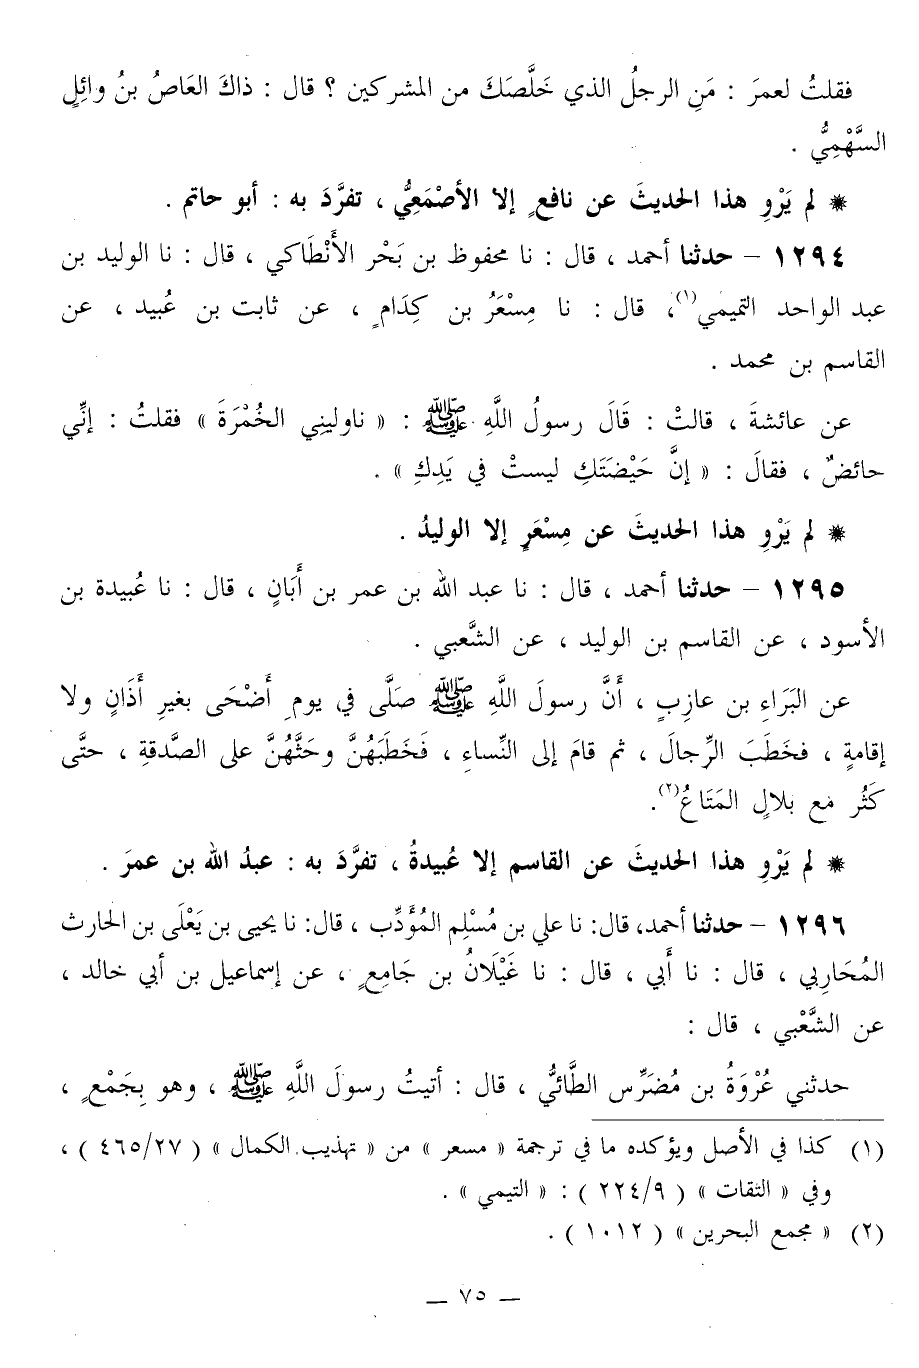 فقلتُ لعمرَ : مَنِ الرجلُ الذي خَلَّصَكَ من المشركين ؟ قال : ذاكَ العَاصُ بنُ وائِلٍ
السَّهْمِيُّ .
* لم يَرْوِ هذا الحديثَ عن نافعٍ إلا الأصْمَعِيُّ ، تفرَّدَ به : أبو حاتم .
١٢٩٤ – حدثنا أحمد ، قال : نا محفوظ بن بَحْر الأَنْطَاكي ، قال : نا الوليد بن
عبد الواحد التميمي(١)، قال : نا مِسْعَرُ بن كِدَامٍ ، عن ثابت بن عُبيد ، عن
القاسم بن محمد .
عن عائشةَ ، قالتْ : قَالَ رسولُ اللَّهِ ﷺ : « ناولينِي الخُمْرَةَ » فقلتُ : إنِّي
حائضٌ ، فقالَ : « إنَّ حَيْضَتَكِ ليستْ في يَدِكِ » .
* لم يَرْوِ هذا الحديثَ عن مِسْعَرٍ إلا الوليدُ .
١٢٩٥ – حدثنا أحمد ، قال : نا عبد الله بن عمر بن أَبَانٍ ، قال : نا عُبيدة بن
الأسود ، عن القاسم بن الوليد ، عن الشَّعبي .
عن البَرَاءِ بن عازِبٍ ، أَنَّ رسولَ اللَّهِ ﷺ صَلَّى في يومِ أَضْحَى بغيرِ أَذَانٍ ولا
إقامةٍ ، فخَطَبَ الرِّجالَ ، ثم قامَ إلى النِّساءِ ، فَخَطَبَهُنَّ وحَثَّهُنَّ على الصَّدقةِ ، حتَّى
كَثُر مع بلالٍ المَتَاعُ(٢).
* لم يَرْوِ هذا الحديثَ عن القاسم إلا عُبيدةُ ، تفرَّدَ به : عبدُ الله بن عمرَ .
١٢٩٦ – حدثنا أحمد، قال: نا علي بن مُسْلِم المُؤَدِّب ، قال: نا يحيى بن يَعْلَى بن الحارث
المُحَارِبي ، قال : نا أَبي ، قال : نا غَيْلَانُ بن جَامِعٍ ، عن إسماعيل بن أبي خالد ،
عن الشَّعْبي ، قال :
حدثني عُرْوَةُ بن مُضَرِّس الطَّائيُّ ، قال : أتيتُ رسولَ اللَّهِ ﷺ ، وهو بِجَمْعٍ ،
(١) كذا في الأصل ويؤكده ما في ترجمة « مسعر » من « تهذيب الكمال » ( ٤٦٥/٢٧ ) ،
وفي « الثقات » ( ٢٢٤/٩ ) : « التيمي » .
(٢) « مجمع البحرين » ( ١٠١٢ ) .
— ٧٥ —